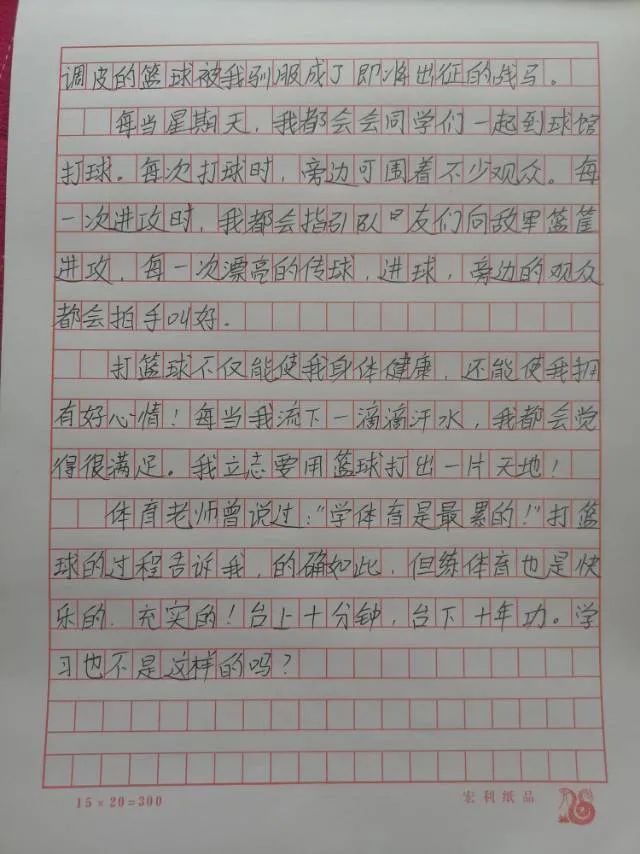 调皮的篮球被我驯服成了即将出征的战马。
每当星期天，我都会会同学们一起到球馆
打球。每次打球时，旁边可围着不少观众。每
一次进攻时，我都会指引队友们向敌军篮筐
进攻，每一次漂亮的传球，进球，旁边的观众
都会拍手叫好.
打篮球不仅能使我身体健康，还能使我拥
有好心情！每当我流下一滴滴汗水，我都会觉
得很满足。我立志要用篮球打出一片天地！
体育老师曾说过：“学体育是最累的！”打篮
球的过程告诉我，的确如此，但练体育也是快
乐的．充实的！台上十分钟，台下十年功。学
习也不是这样的吗？
15×20=300
宏利纸品